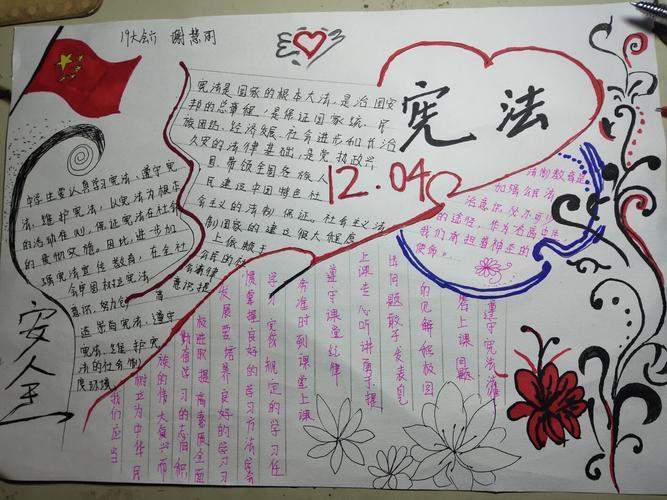 19大会六 谢慧雨
宪法
12.04
宪法是国家的根本大法,是治国安
邦的总章程,是保证国家统一、民
族团结、经济发展、社会进步和长治
久安的法律基础,是党执政兴
国、带领全国各族人
民建设中国特色社
会主义的法制保证。社会主义法
制国家的建设很大程度
上依赖于
公民的
法律
意识提
中学生要认真学习宪法、遵守宪
法、维护宪法,以宪法为根本
的活动准则,保证宪法在社会
的贯彻实施。因此,进步加
强宪法宣传教育,在全社
会牢固树立宪法
意识,努力创
造学自宪法、遵守
宪法、维护宪
法的社会制
度环境。
安人王
法制教育是
加强公民法
治意识必不可少
的途径,作为
我们肩担着神圣的
使命。
遵守宪法法
看上课问题
的见解能极回
出问题敢于发表自
上课专心听讲勇于提
遵守课堂纪律
务准时到课堂上课
学习完成规定的学习任
惯掌握良好的学习方法完
发展要培养良好的学习习
极进取提高素质全面
勤奋学习的志向积
族的伟大复兴而
树立为中华民
我们应当